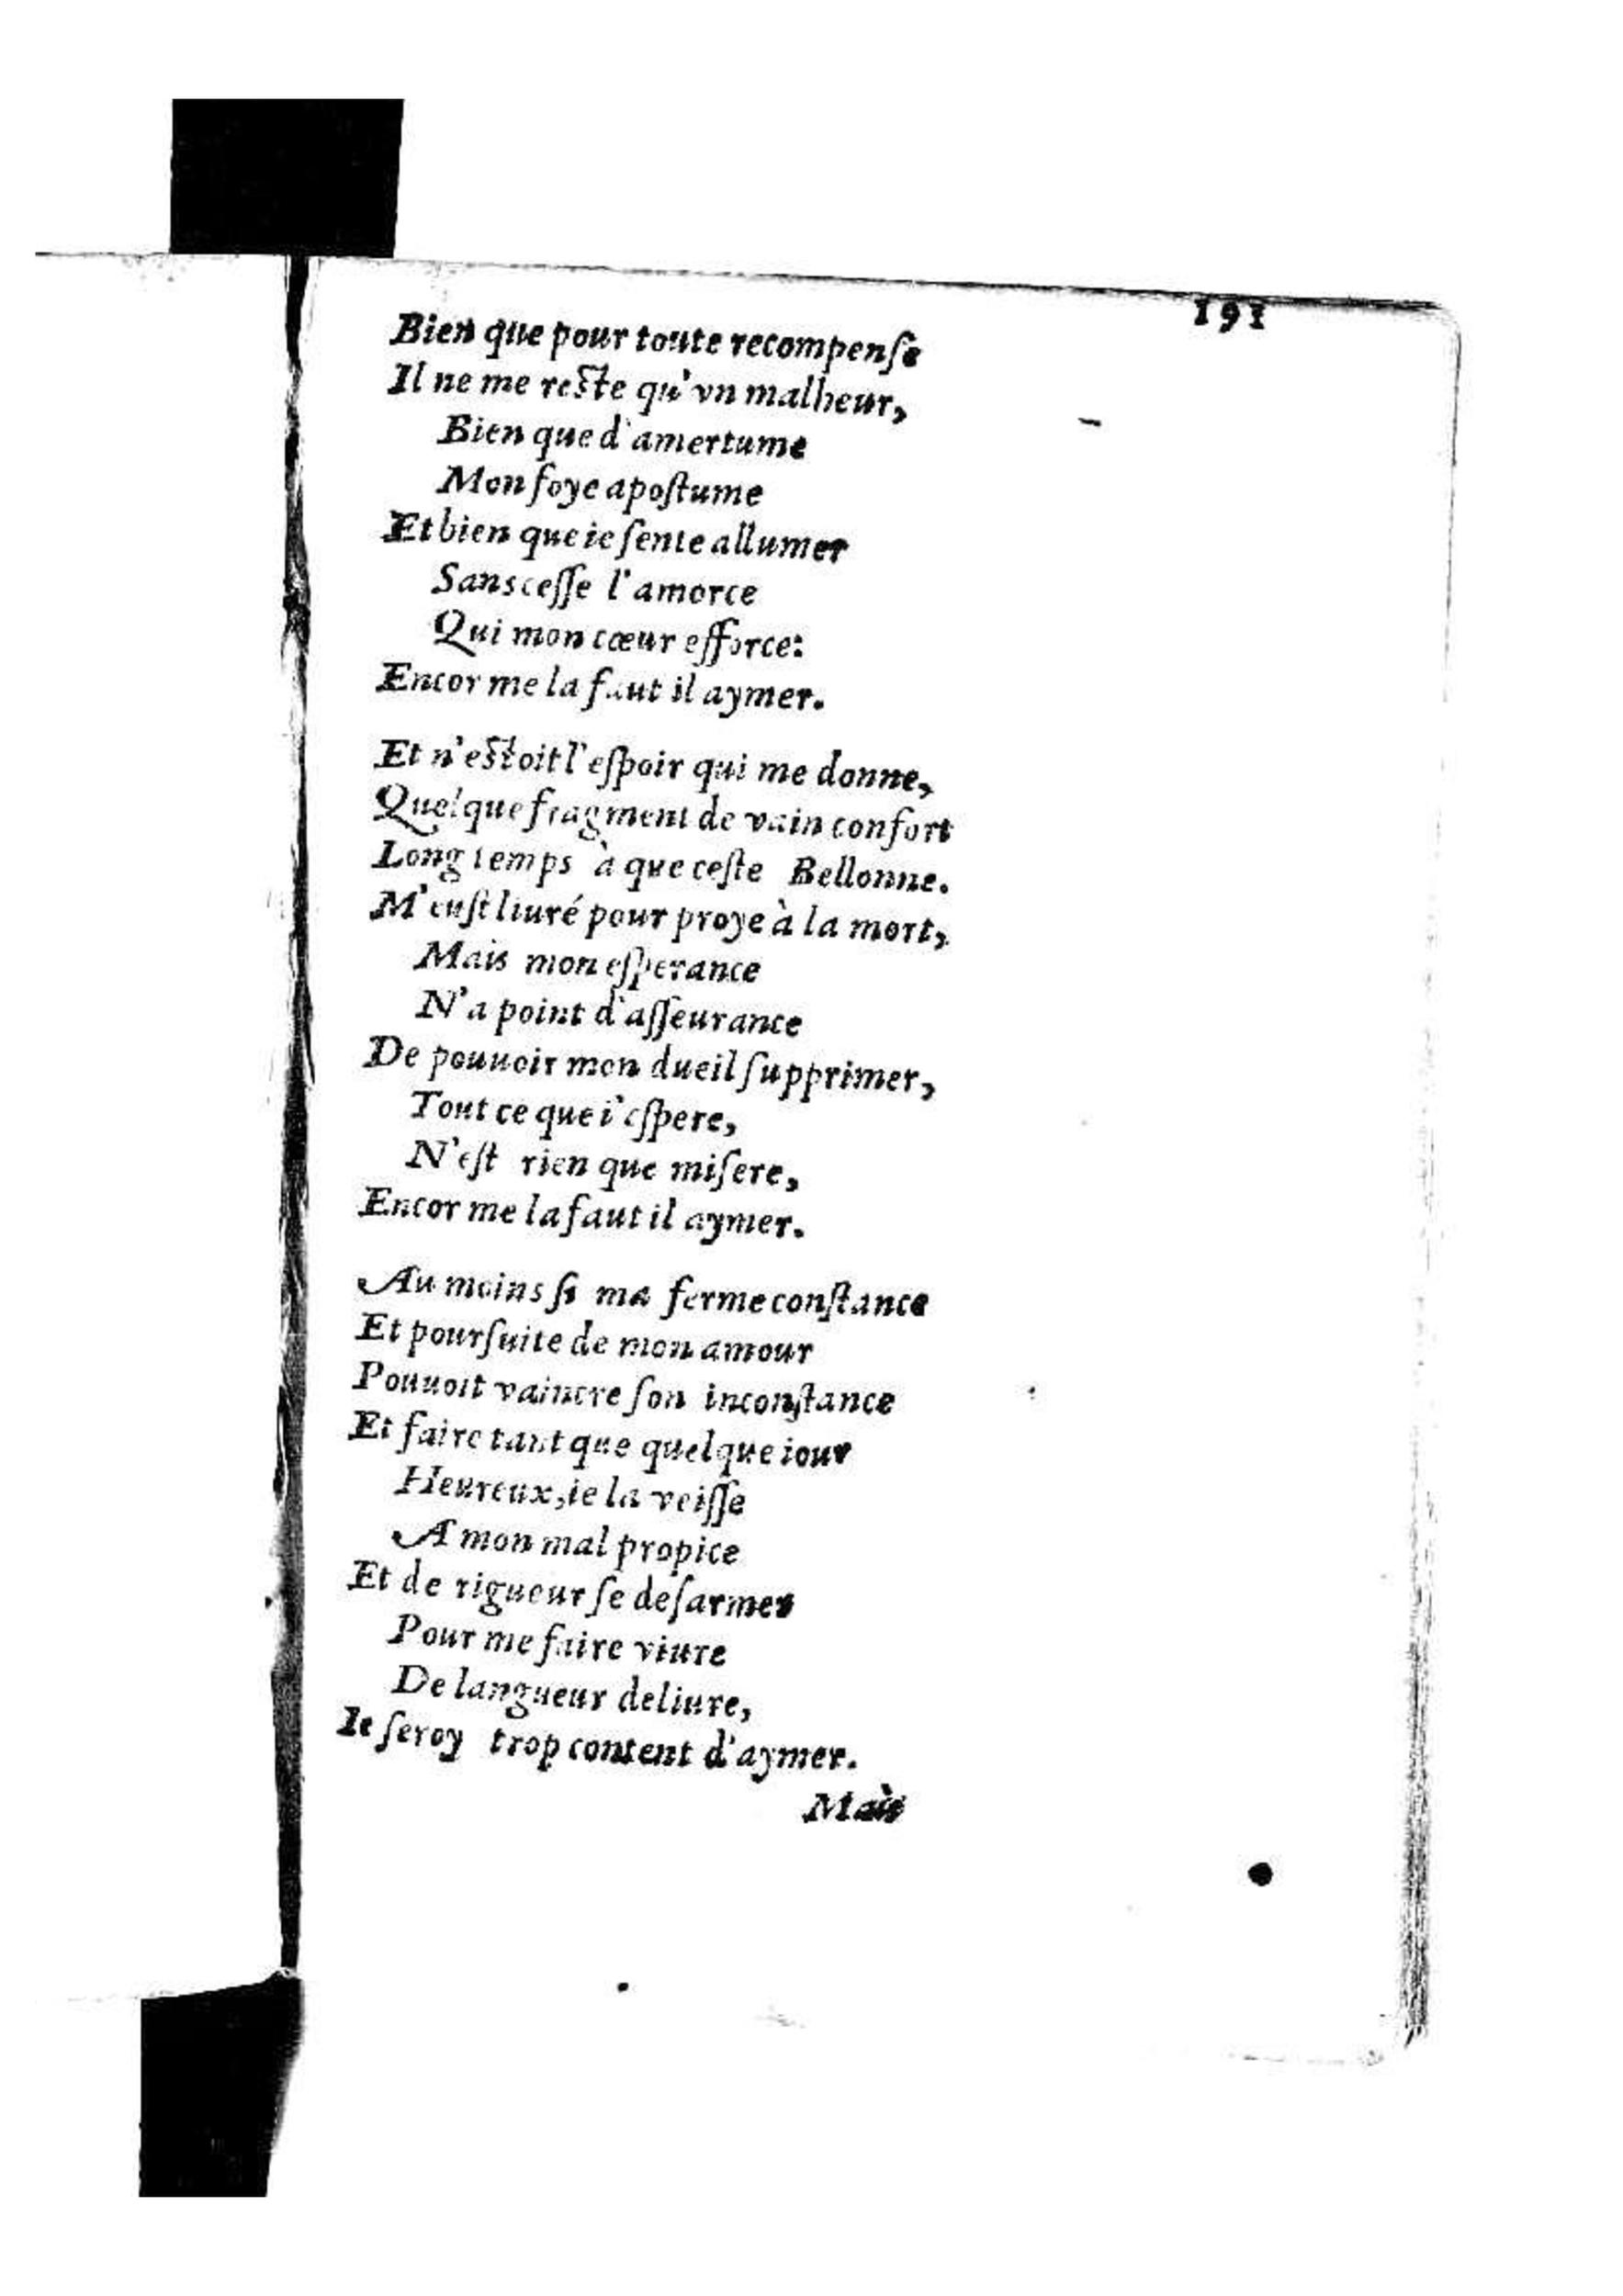 191
Bien que pour toute recompenſe
Il ne me reſte qu'vn malheur,
Bien que d'amertume
Mon foye apoſtume
Et bien que ie ſente allumer
Sans ceſſe l'amorce
Qui mon cœur efforce:
Encor me la faut il aymer.
Et n'eſtoit l'eſpoir qui me donne,
Quelque fragment de vain confort
Long temps à que ceſte Bellonne.
M'euſt liuré pour proye à la mort,
Mais mon eſperance
N'a point d'aſſeurance
De pouuoir mon dueil ſupprimer,
Tout ce que i'eſpere,
N'eſt rien que miſere,
Encor me la faut il aymer.
Au moins ſi ma ferme conſtance
Et pourſuite de mon amour
Pouuoit vaincre ſon inconſtance
Et faire tant que quelque iour
Heureux, ie la veiſſe
A mon mal propice
Et de rigueur ſe deſarmer
Pour me faire viure
De langueur deliure,
Ie ſeroy trop content d'aymer.
Mais